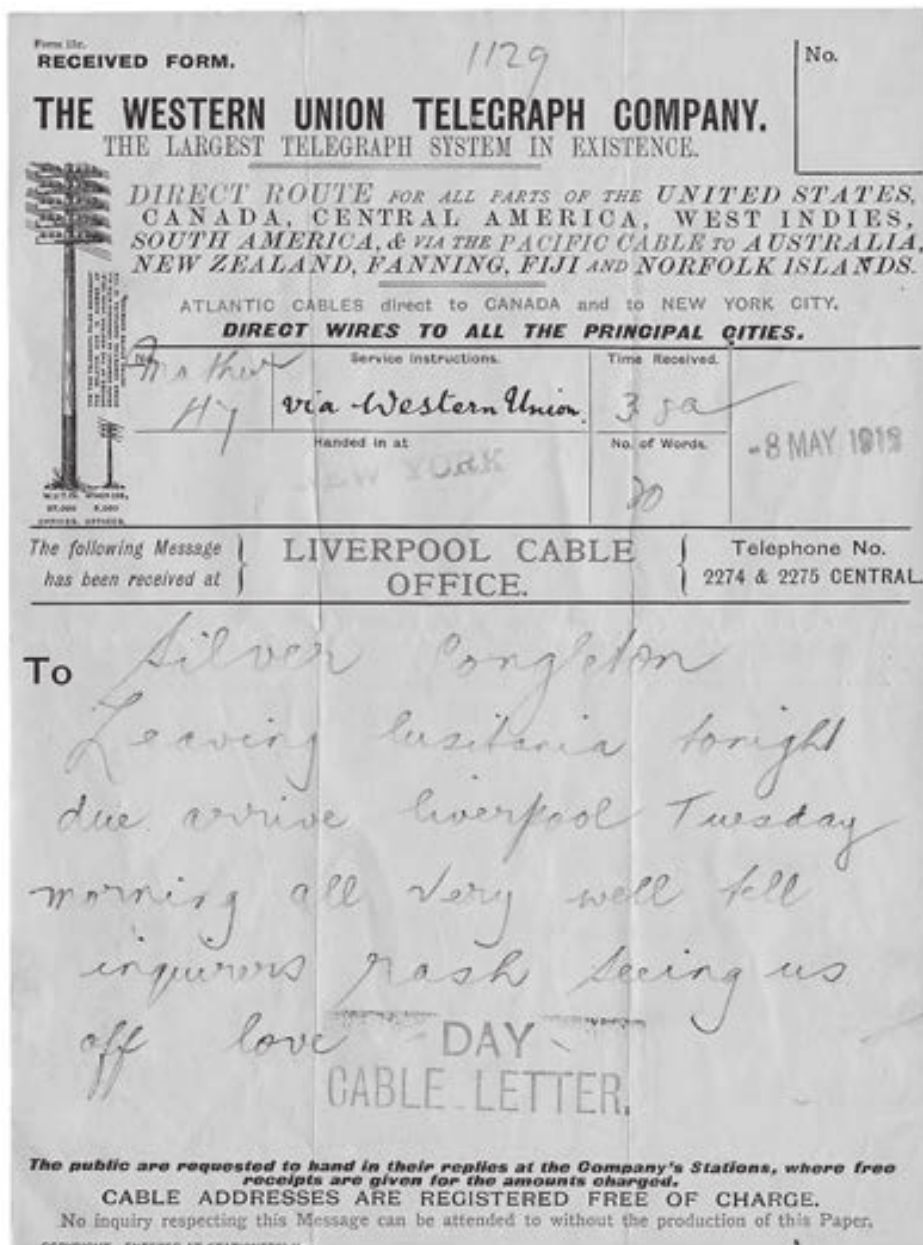 Form 15c.
RECEIVED FORM.
1129
No.
THE WESTERN UNION TELEGRAPH COMPANY.
THE LARGEST TELEGRAPH SYSTEM IN EXISTENCE.
DIRECT ROUTE FOR ALL PARTS OF THE UNITED STATES,
CANADA, CENTRAL AMERICA, WEST INDIES,
SOUTH AMERICA, & VIA THE PACIFIC CABLE TO AUSTRALIA,
NEW ZEALAND, FANNING, FIJI AND NORFOLK ISLANDS.
ATLANTIC CABLES direct to CANADA and to NEW YORK CITY.
DIRECT WIRES TO ALL THE PRINCIPAL CITIES.
No. Service Instructions. Time Received.
via Western Union
Handed in at No. of Words.
NEW YORK
20
-8 MAY
The following Message
has been received at
LIVERPOOL CABLE
OFFICE.
Telephone No.
2274 & 2275 CENTRAL.
To Silver Congleton
Leaving lusitania tonight
due arrive liverpool Tuesday
morning all very well tell
inquirers rash seeing us
off love
DAY
CABLE LETTER.
The public are requested to hand in their replies at the Company's Stations, where free
receipts are given for the amounts charged.
CABLE ADDRESSES ARE REGISTERED FREE OF CHARGE.
No inquiry respecting this Message can be attended to without the production of this Paper.